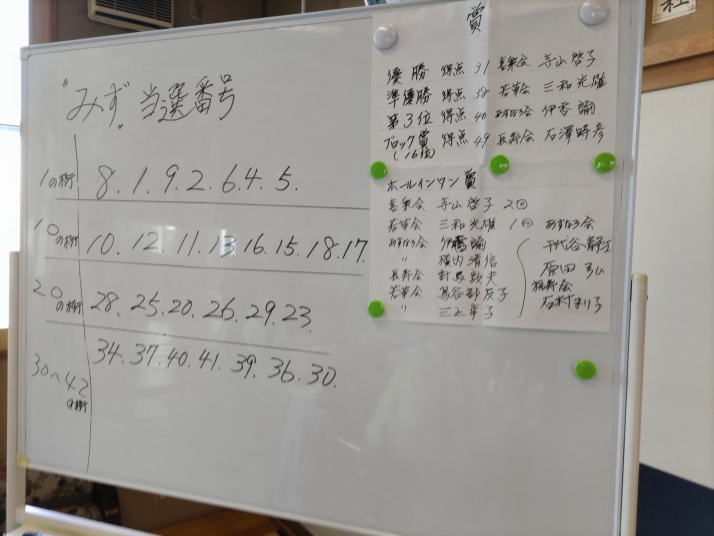 "みず"当選番号
1の桁 8. 1. 9. 2. 6. 4. 5.
10の桁 10. 12. 11. 13. 16. 15. 18. 17.
20の桁 28. 25. 20. 26. 29. 23.
30〜42の桁 34. 37. 40. 41. 39. 36. 30.
賞
優勝 得点 31 喜楽会 寺山啓子
準優勝 得点 38 若草会 三和光雄
第3位 得点 40 あすなろ会 伊香諭
ブロック賞 得点 49 長寿会 石澤時彦
(16位)
ホールインワン賞
喜楽会 寺山啓子 2回
若草会 三和光雄 1回 あすなろ会
あすなろ会 諭 千代谷静江
〃 横内清信 原田
長寿会 対馬敦夫 長寿会
若草会 鳥谷部友子 石村まり子
〃 三上幸子